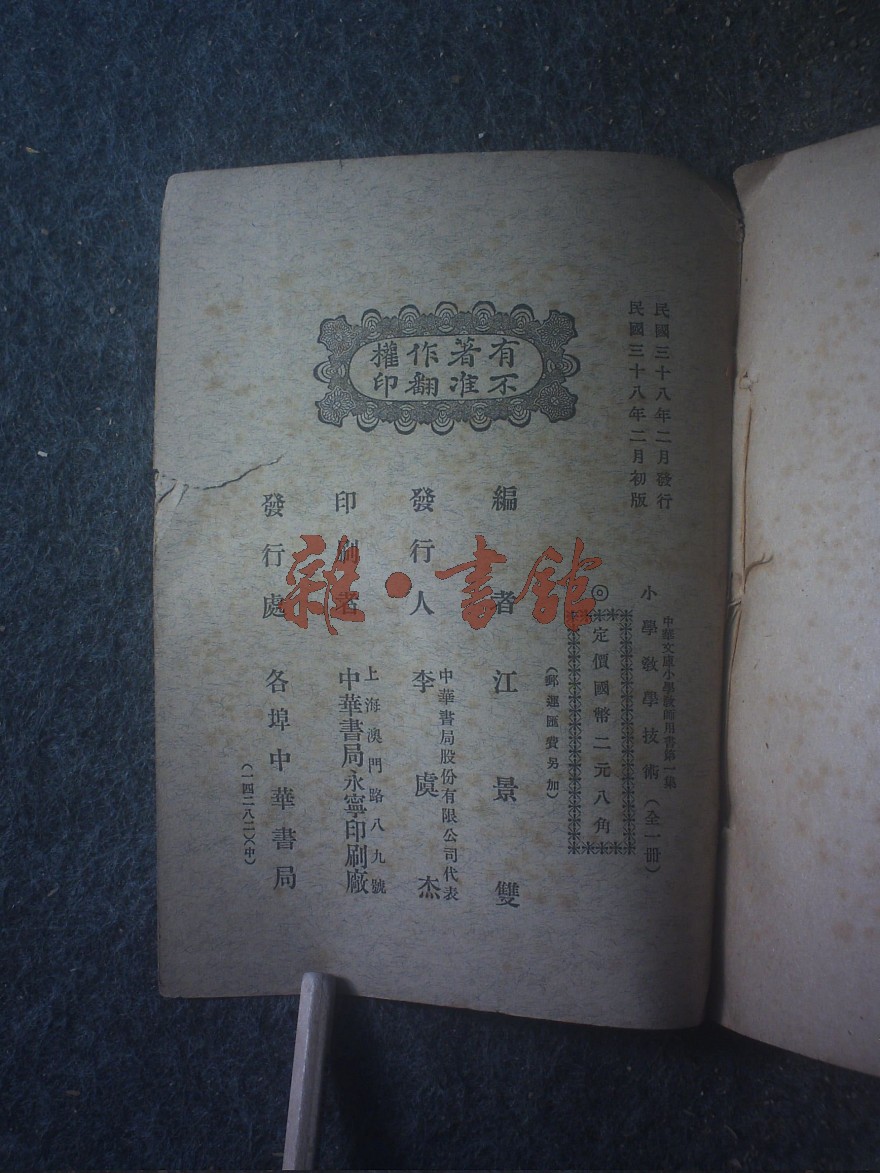 民國三十八年二月發行
民國三十八年二月初版
有著作權
不准翻印
中華文庫小學教師用書第一集
小學教學技術(全一冊)
◎定價國幣二元八角
(郵運匯費另加)
編者 江景雙
發行人 李虞杰
中華書局股份有限公司代表
印刷者
上海澳門路八九號
中華書局永寧印刷廠
發行處 各埠中華書局
(一四二八二)(中)
雜·書館